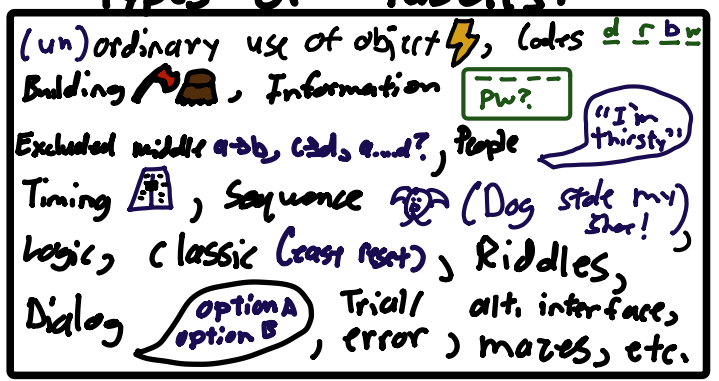 Types of Puzzles:
(un)ordinary use of object, Codes d r b w
Building, Information PW?
Excluded middle a→b, c→d, a...d?, People "I'm thirsty"
Timing, Sequence (Dog stole my shoe!),
Logic, Classic (least reset), Riddles,
Dialog option A option B, Trial/error, alt. interface, mazes, etc.